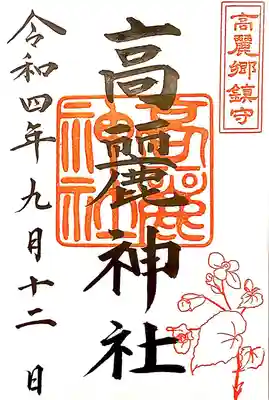 高麗郷鎮守
高麗神社
高麗神社
令和四年九月十二日